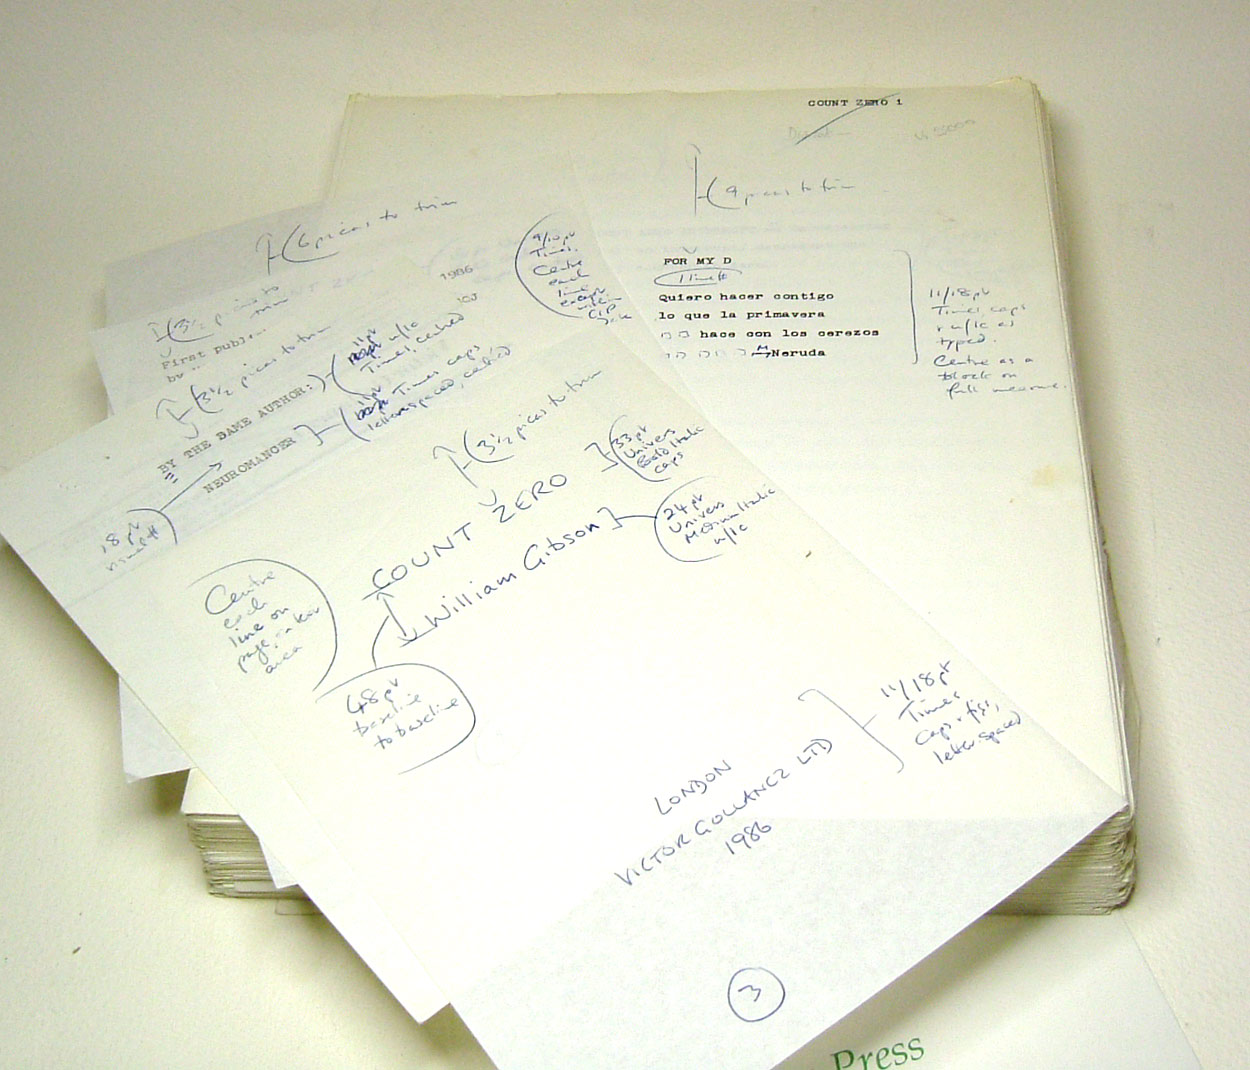 COUNT ZERO 1
(9 picas to trim
FOR MY D
1 line #
Quiero hacer contigo
lo que la primavera
hace con los cerezos
Neruda
11/18pt
Times, caps
+ u/lc as
typed.
Centre as a
block on
full measure.
(6 picas to trim
1986
9/10pt
Times.
Centre
each
line
except
within
CIP
(3½ picas to
trim
First publ
by
(3½ picas to trim
BY THE SAME AUTHOR:)
11pt
u/lc
Times, centred
NEUROMANCER
11pt
Times caps,
letterspaced, centred
18pt
(3½ picas to trim
COUNT ZERO
33pt
Univers
Bold Italic
caps
William Gibson
24pt
Univers
Medium Italic
u/lc
Centre
each
line on
page
area
48pt
baseline
to baseline
LONDON
VICTOR GOLLANCZ LTD
1986
11/18pt
Times
Caps + figs,
letterspaced
3
Press